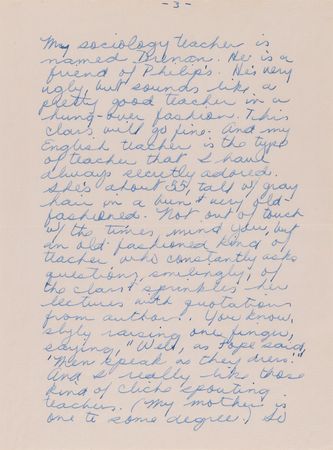 - 3 -
My sociology teacher is
named Brenan. He is a
friend of Philip's. He's very
ugly, but sounds like a
pretty good teacher in a
hung-over fashion. This
class will go fine. And my
English teacher is the type
of teacher that I have
always secretly adored.
She's about 55, tall w/ gray
hair in a bun & very old-
fashioned. Not out of touch
w/ the times, mind you, but
an old-fashioned kind of
teacher who constantly asks
questions, smilingly, of
the class & sprinkles her
lectures with quotations
from authors. You know,
slyly raising one finger,
saying, "Well, as Pope said,
'Men speak as they dress.'"
And I really like those
kind of cliche spouting
teachers. (My mother is
one to some degree.) So